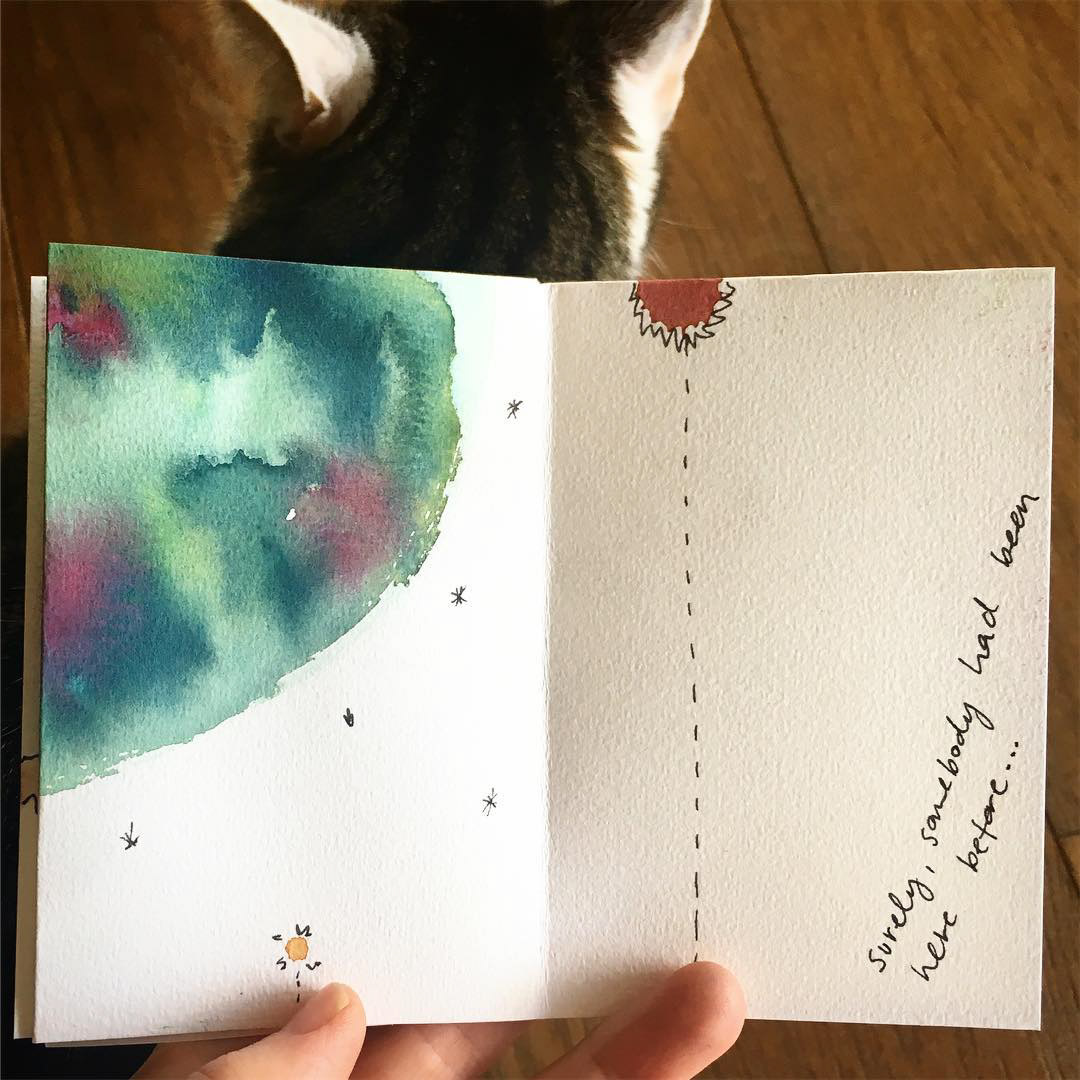 Surely, somebody had been
here before...